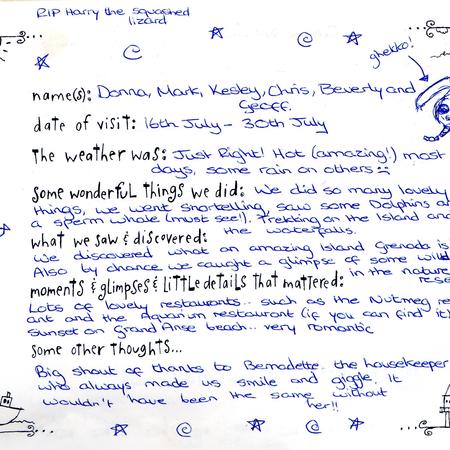 RIP Harry the squashed
lizard
ghekko!
name(s): Donna, Mark, Kesley, Chris, Beverly and
Geoff.
date of visit: 16th July - 30th July
The weather was: Just Right! Hot (amazing!) most
days, some rain on others
Some wonderful things we did: We did so many lovely
things, we went snortelling, saw some Dolphins a
a sperm whale (must see!). Trekking on the Island and
the waterfalls.
what we saw & discovered:
We discovered what an amazing Island Grenada is
Also by chance we caught a glimpse of some wild
in the nature
rese
moments & glimpses & little details that mattered:
Lots of lovely restaurants.. such as the Nutmeg re
ant and the Aquarium restaurant (if you can find it)
sunset on Grand Anse beach.. very romantic
Some other thoughts...
Big shout of thanks to Bernadette. the housekeeper
who always made us smile and giggle. It
wouldn't have been the same without
her!!